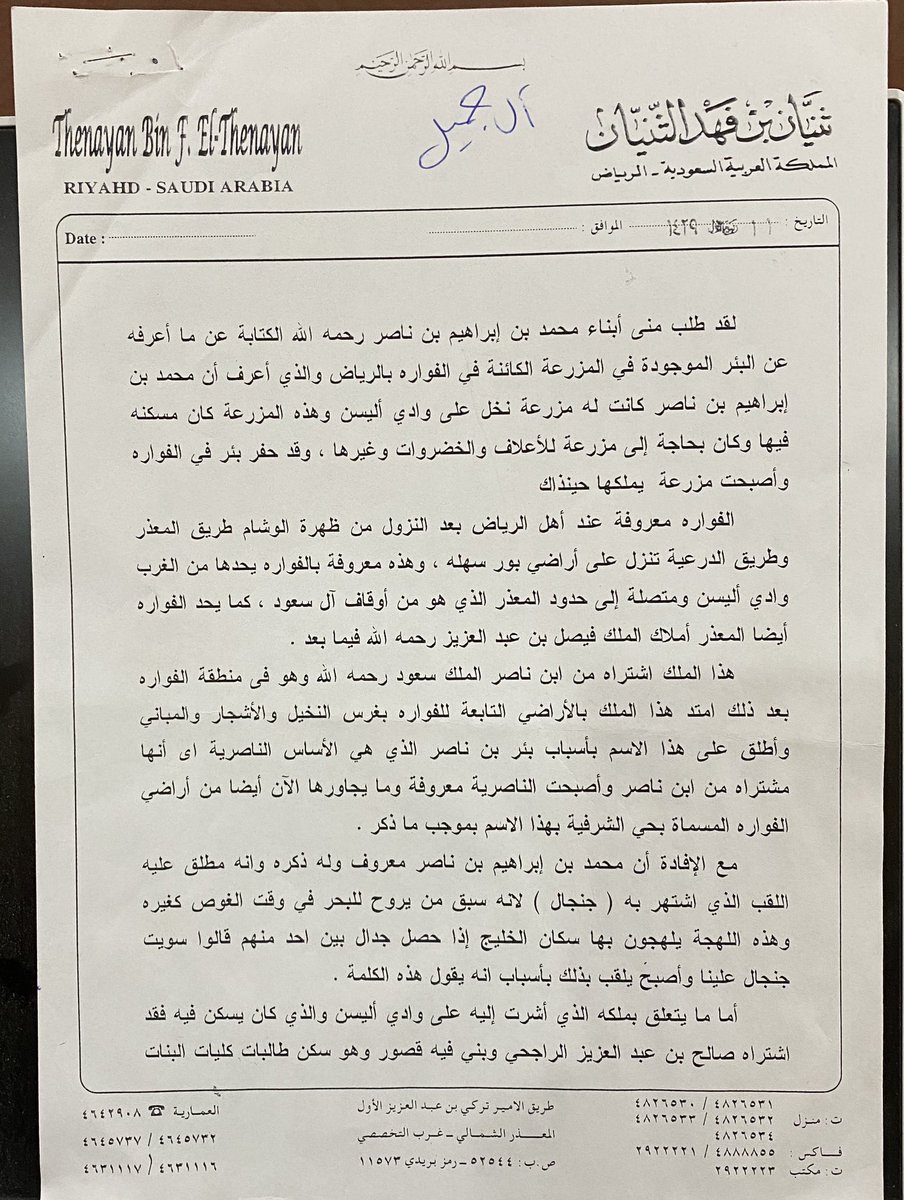 بسم الله الرحمن الرحيم
Thenayan Bin F. El-Thenayan
RIYAHD - SAUDI ARABIA
آل جميل
ثنيان بن فهد الثنيان
المملكة العربية السعودية - الرياض
التاريخ : ١١ ١٤٢٩ الموافق : Date :
لقد طلب منى أبناء محمد بن إبراهيم بن ناصر رحمه الله الكتابة عن ما أعرفه
عن البئر الموجودة في المزرعة الكائنة في الفواره بالرياض والذي أعرف أن محمد بن
إبراهيم بن ناصر كانت له مزرعة نخل على وادي أليسن وهذه المزرعة كان مسكنه
فيها وكان بحاجة إلى مزرعة للأعلاف والخضروات وغيرها ، وقد حفر بئر في الفواره
وأصبحت مزرعة يملكها حينذاك
الفواره معروفة عند أهل الرياض بعد النزول من ظهرة الوشام طريق المعذر
وطريق الدرعية تنزل على أراضي بور سهله ، وهذه معروفة بالفواره يحدها من الغرب
وادي أليسن ومتصلة إلى حدود المعذر الذي هو من أوقاف آل سعود ، كما يحد الفواره
أيضا المعذر أملاك الملك فيصل بن عبد العزيز رحمه الله فيما بعد .
هذا الملك اشتراه من ابن ناصر الملك سعود رحمه الله وهو فى منطقة الفواره
بعد ذلك امتد هذا الملك بالأراضي التابعة للفواره بغرس النخيل والأشجار والمباني
وأطلق على هذا الاسم بأسباب بئر بن ناصر الذي هي الأساس الناصرية اى أنها
مشتراه من ابن ناصر وأصبحت الناصرية معروفة وما يجاورها الآن أيضا من أراضي
الفواره المسماة بحي الشرفية بهذا الاسم بموجب ما ذكر .
مع الإفادة أن محمد بن إبراهيم بن ناصر معروف وله ذكره وانه مطلق عليه
اللقب الذي اشتهر به ( جنجال ) لانه سبق من يروح للبحر في وقت الغوص كغيره
وهذه اللهجة يلهجون بها سكان الخليج إذا حصل جدال بين احد منهم قالوا سويت
جنجال علينا وأصبح يلقب بذلك بأسباب انه يقول هذه الكلمة .
أما ما يتعلق بملكه الذي أشرت إليه على وادي أليسن والذي كان يسكن فيه فقد
اشتراه صالح بن عبد العزيز الراجحي وبني فيه قصور وهو سكن طالبات كليات البنات
ت : منزل ٤٨٢٦٥٣١ / ٤٨٢٦٥٣٠
٤٨٢٦٥٣٢ / ٤٨٢٦٥٣٣
٤٨٢٦٥٣٤
فاكس : ٤٨٨٨٨٥٥ / ٢٩٢٢٢٢١
ت : مكتب ٢٩٢٢٢٢٣
طريق الامير تركي بن عبد العزيز الأول
المعذر الشمالي - غرب التخصصي
ص . ب : ٥٢٥٤٤ - رمز بريدي ١١٥٧٣
العمارية ☎ ٤٦٤٢٩٠٨
٤٦٤٥٧٣٢ / ٤٦٤٥٧٣٧
٤٦٣١١١٦ / ٤٦٣١١١٧